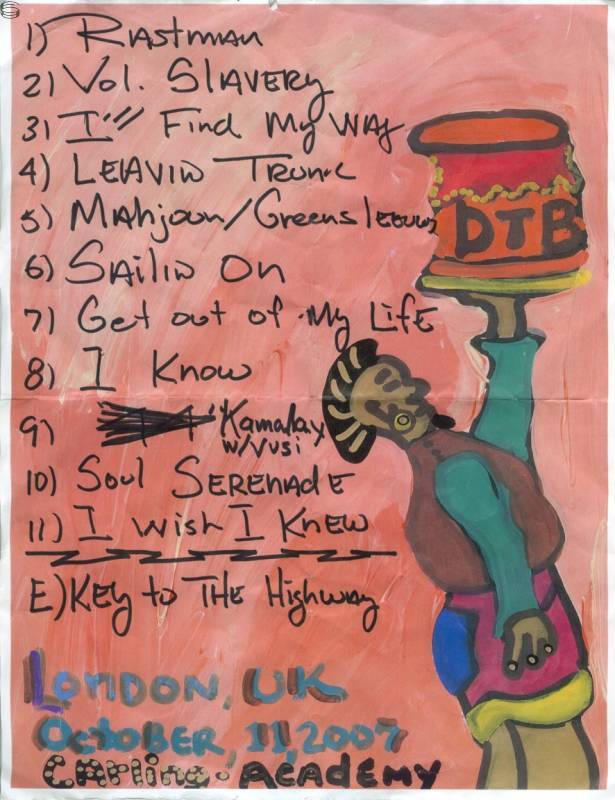 1) Rastman
2) Vol. Slavery
3) I'll Find My Way
4) Leavin Trunk
5) Mahjoun/Greensleeves
6) Sailin On
7) Get out of My Life
8) I Know
9) Kamalay
w/Vusi
10) Soul Serenade
11) I wish I Knew
E) Key to THE Highway
DTB
London, UK
October, 11, 2007
Carling Academy